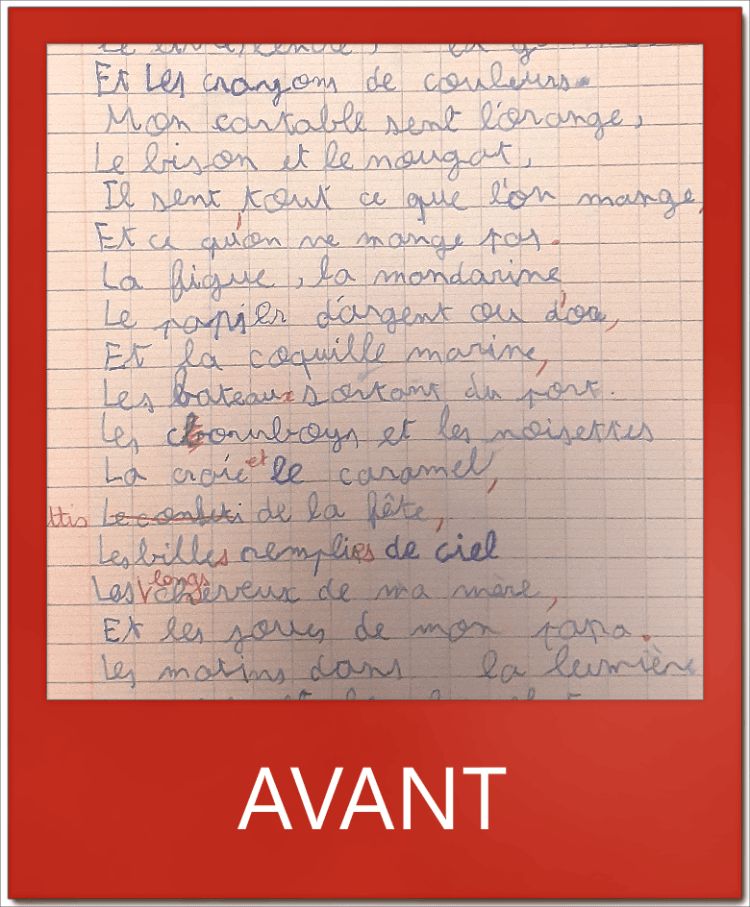 Et Les crayons de couleurs.
Mon cartable sent l'orange,
Le bison et le nougat,
Il sent tout ce que l'on mange,
Et ce qu'on ne mange pas.
La figue, la mandarine
Le papier d'argent ou d'or,
Et la coquille marine,
Les bateaux sortant du port.
Les cowboys et les noisettes
La craie et le caramel,
ttis Le confeti de la fête,
Les billes remplies de ciel
Les longs cheveux de ma mère,
Et les joues de mon papa.
Les matins dans la lumière
AVANT